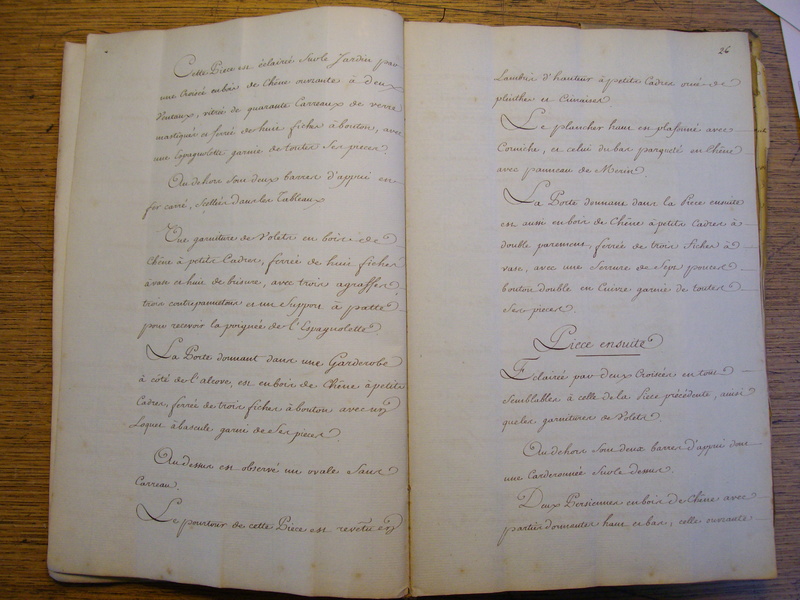 Cette Piece est éclairée sur le Jardin par
une Croisée en bois de Chêne ouvrante à deux
Venteaux, vitrée de quarante Carreaux de verre
mastiqués et ferrée de huit fiches à bouton, avec
une Espagnolette garnie de toutes ses pieces.
Au dehors sont deux barres d'appui en
fer carré, scellées dans les Tableaux
Une garniture de Volets en bois de
Chêne à petits Cadres, ferrée de huit fiches
à vase et huit de brisure, avec trois agraffes
trois contrepannetons et un Support à patte
pour recevoir la poignée de l'Espagnolette
La Porte donnant dans une Garderobe
à côté de l'alcove, est en bois de Chêne à petits
Cadres, ferrée de trois fiches à bouton avec un
Loquet à bascule garni de ses pieces.
Au dessus est observé un ovale sans
Carreau.
Le pourtour de cette Piece est revêtu en
26
Lambris d'hauteur à petits Cadres orné de
plinthes et Cimaises
Le plancher haut est plafonné avec
Corniche, et celui du bas parqueté en Chêne
avec panneau de Merin.
La Porte donnant dans la Piece ensuite
est aussi en bois de Chêne à petits Cadres à
double parement, ferrée de trois fiches à
vase, avec une Serrure de Sept pouces
bouton double en Cuivre garnie de toutes
ses pieces.
Piece ensuite
Eclairée par deux Croisées en tous
semblables à celle de la Piece précédente, ainsi
que les garnitures de Volets.
Au dehors sont deux barres d'appui dont
une Carderonnée sur le dessus.
Deux Persiennes en bois de Chêne avec
parties dormantes haut et bas, celle ouvrante